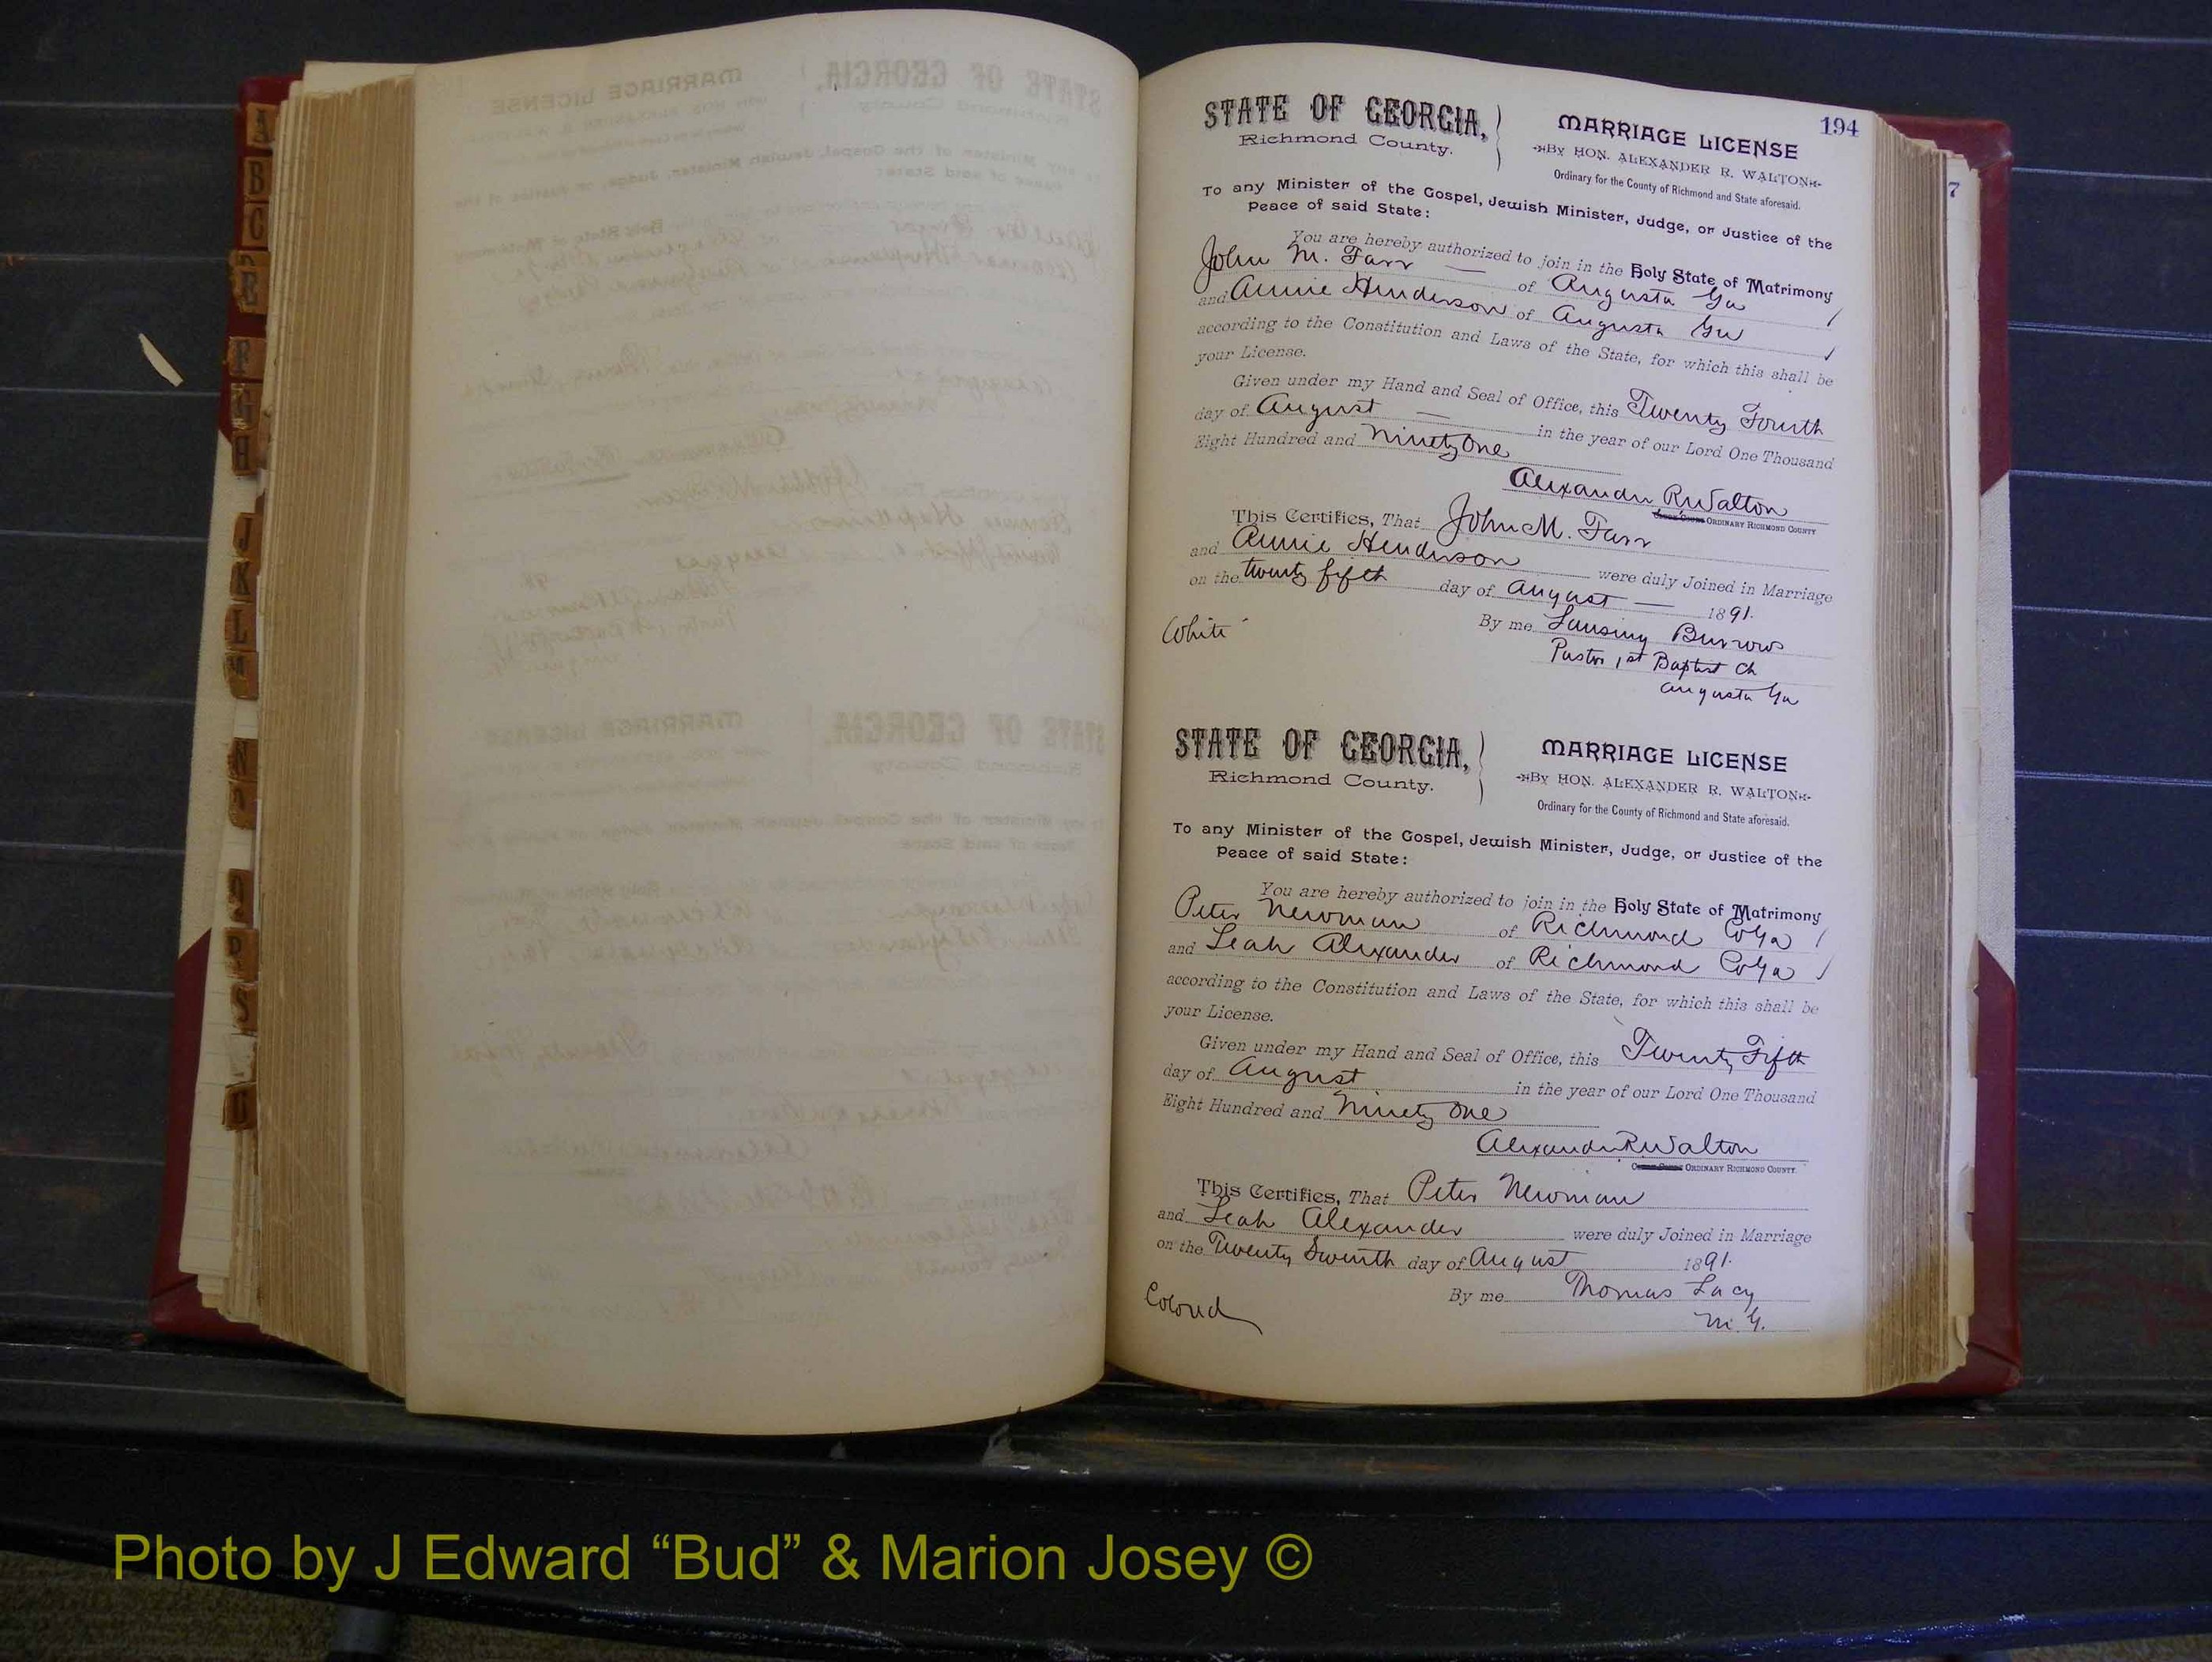 A
B
C
E
F
G
H
J
K
L
M
N
O
P
S
U
194
7
STATE OF GEORGIA,
Richmond County.
MARRIAGE LICENSE
By HON. ALEXANDER R. WALTON
Ordinary for the County of Richmond and State aforesaid.
To any Minister of the Gospel, Jewish Minister, Judge, or Justice of the
Peace of said State:
You are hereby authorized to join in the Holy State of Matrimony
John M. Farr — of Augusta Ga
and Annie Henderson of Augusta Ga
according to the Constitution and Laws of the State, for which this shall be
your License.
Given under my Hand and Seal of Office, this Twenty Fourth
day of August — in the year of our Lord One Thousand
Eight Hundred and Ninety One
Alexander R Walton
ORDINARY RICHMOND COUNTY
This Certifies, That John M. Farr
and Annie Henderson were duly Joined in Marriage
on the twenty fifth day of August — 1891.
White
By me Lansing Burrows
Pastor 1st Baptist Ch
Augusta Ga
STATE OF GEORGIA,
Richmond County.
MARRIAGE LICENSE
By HON. ALEXANDER R. WALTON
Ordinary for the County of Richmond and State aforesaid.
To any Minister of the Gospel, Jewish Minister, Judge, or Justice of the
Peace of said State:
You are hereby authorized to join in the Holy State of Matrimony
Peter Newman of Richmond Co Ga
and Leah Alexander of Richmond Co Ga
according to the Constitution and Laws of the State, for which this shall be
your License.
Given under my Hand and Seal of Office, this Twenty Fifth
day of August in the year of our Lord One Thousand
Eight Hundred and Ninety One
Alexander R Walton
ORDINARY RICHMOND COUNTY.
This Certifies, That Peter Newman
and Leah Alexander were duly Joined in Marriage
on the Twenty Seventh day of August 1891.
By me Thomas Lacy
M. G.
Colored
Photo by J Edward “Bud” & Marion Josey ©